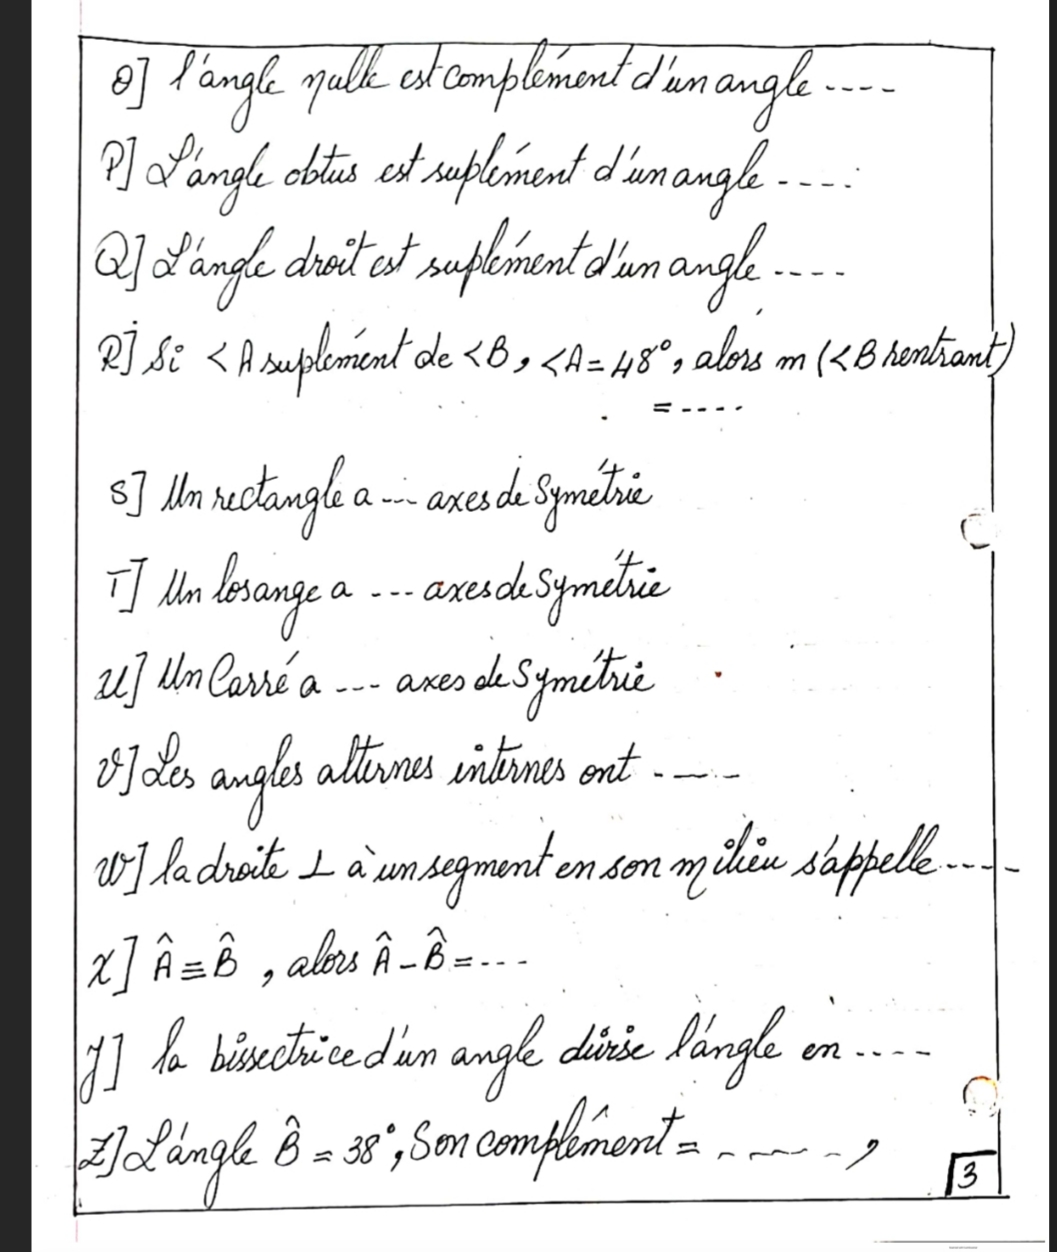 O] l'angle nulle est complément d'un angle ----
P] L'angle obtus est suplément d'un angle ----.
Q] L'angle droit est suplément d'un angle ----
R] Si <A suplément de <B, <A = 48°, alors m (<B rentrant)
= ----
S] Un rectangle a --- axes de Symétrie
T] Un losange a --- axes de Symétrie
U] Un Carré a --- axes de Symétrie
V] Les angles alternes internes ont ----
W] la droite ⊥ à un segment en son milieu s'appelle ----
X] Â ≡ B̂ , alors Â - B̂ = ---
Y] la bissectrice d'un angle divise l'angle en ----
Z] L'angle B̂ = 38°, Son complément = ----- ,
3